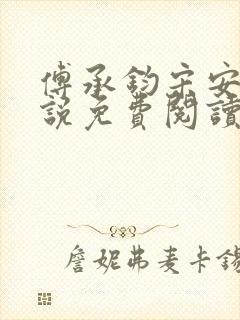 傅承鈞宋安
說免費閱讀
詹妮弗麦卡錫